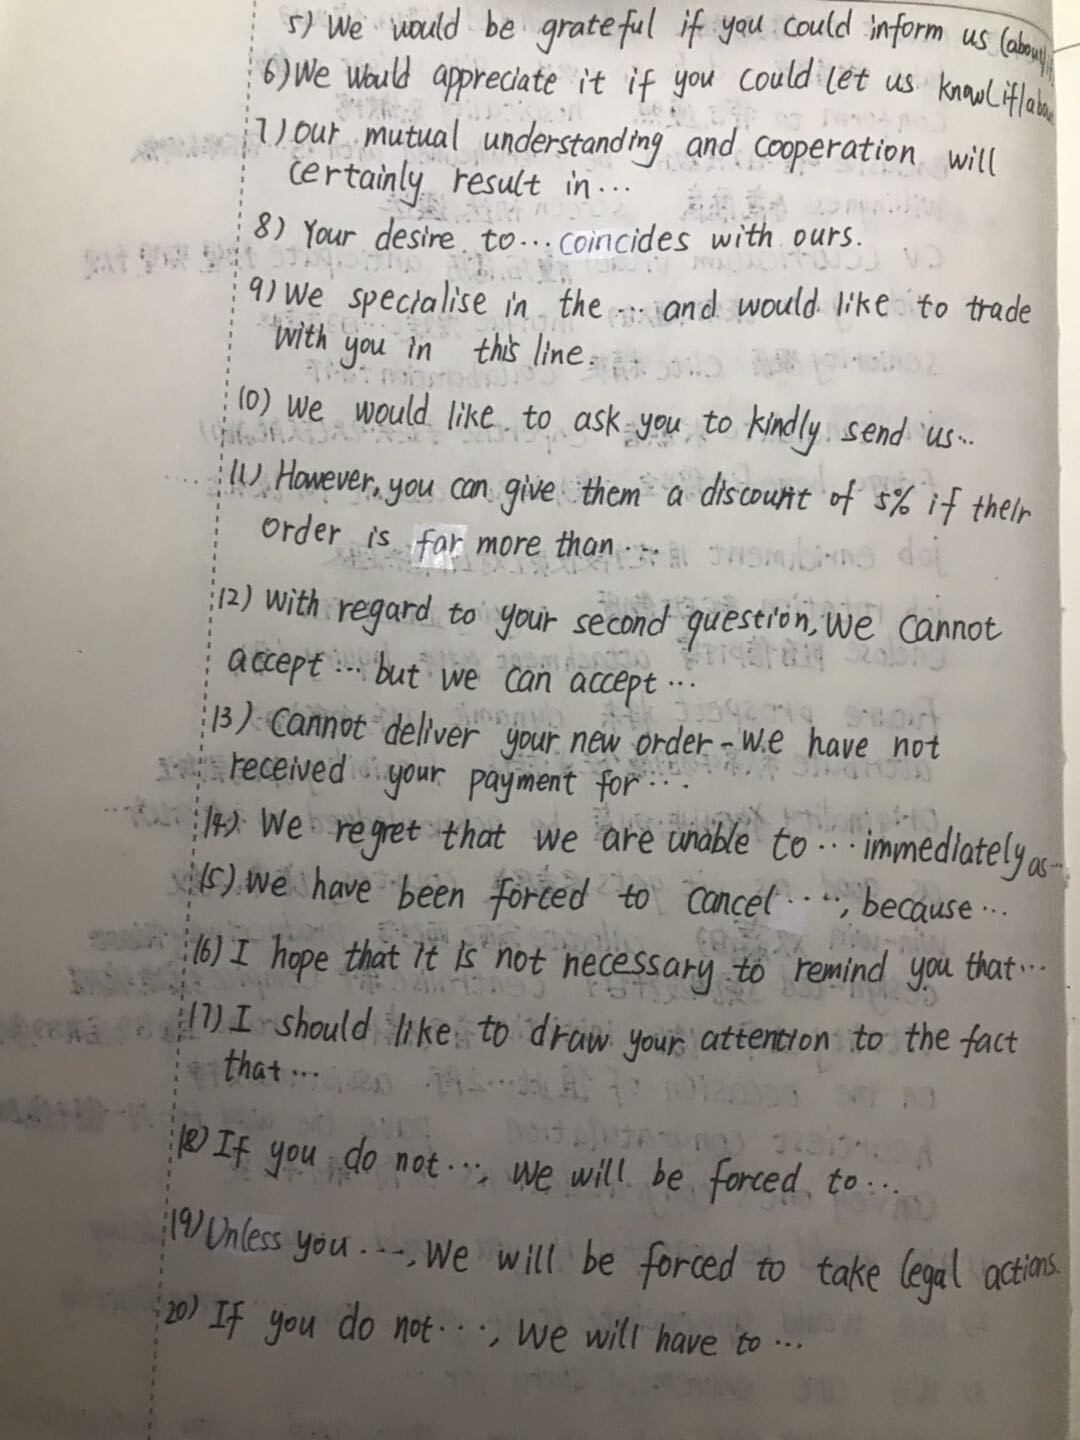 5) We would be grateful if you could inform us (about/
6) We would appreciate it if you could let us know (if/about
7) Our mutual understanding and cooperation will
certainly result in...
8) Your desire to... coincides with ours.
9) We specialise in the ... and would like to trade
with you in this line.
10) We would like to ask you to kindly send us...
11) However, you can give them a discount of 5% if their
order is far more than ...
12) With regard to your second question, we cannot
accept ... but we can accept ...
13) Cannot deliver your new order - we have not
received your payment for ...
14) We regret that we are unable to ... immediately as...
15) We have been forced to cancel ..., because ...
16) I hope that it is not necessary to remind you that...
17) I should like to draw your attention to the fact
that ...
18) If you do not ..., we will be forced to ...
19) Unless you ..., we will be forced to take legal actions.
20) If you do not ..., we will have to ...